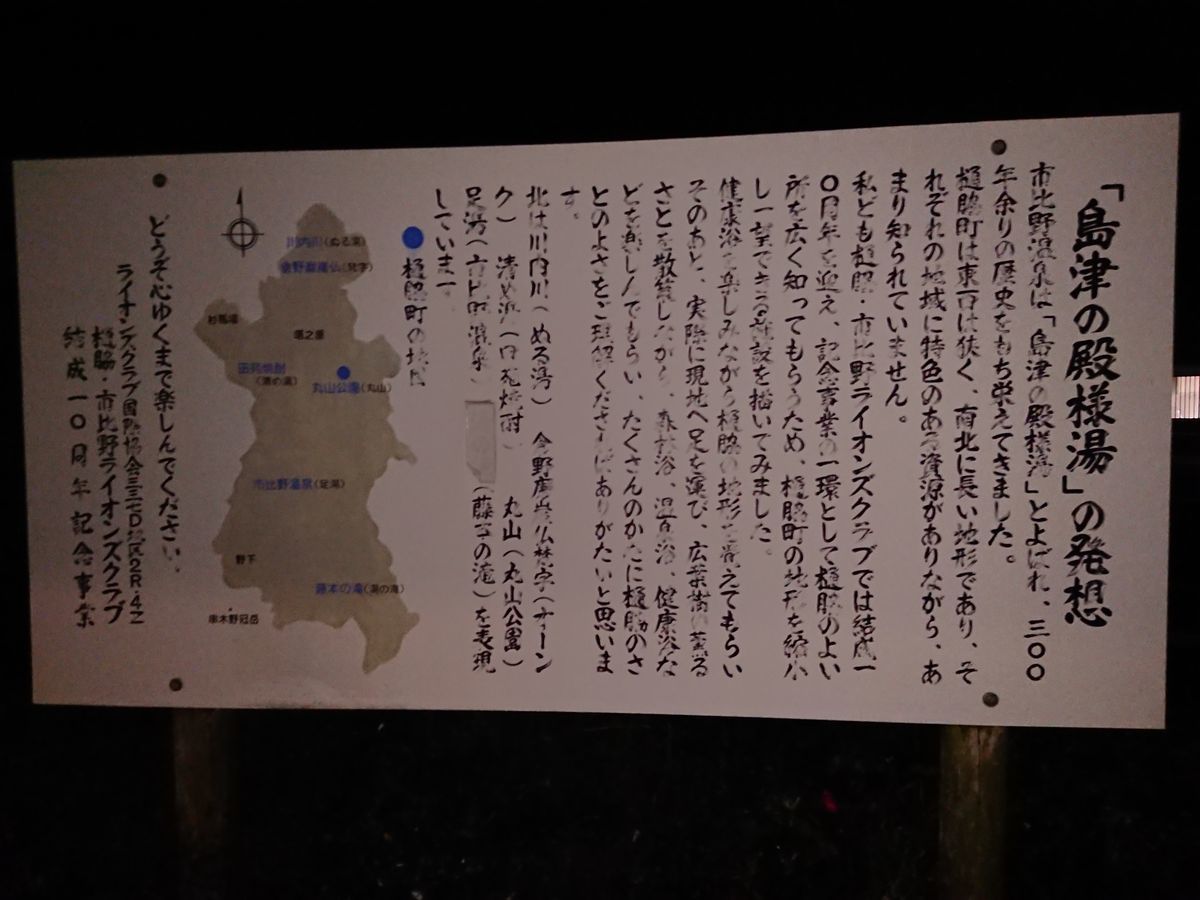 「島津の殿様湯」の発想
市比野温泉は「島津の殿様湯」とよばれ、三〇〇
年余りの歴史をもち栄えてきました。
樋脇町は東西は狭く、南北に長い地形であり、そ
れぞれの地域に特色のある資源がありながら、あ
まり知られていません。
私ども樋脇・市比野ライオンズクラブでは結成一
〇周年を迎え、記念事業の一環として樋脇のよい
所を広く知ってもらうため、樋脇町の地形を縮小
し一望できる施設を描いてみました。
健康浴を楽しみながら樋脇の地形を覚えてもらい
そのあと、実際に現地へ足を運び、広葉樹の薫る
さとを散策しながら、森林浴、温泉浴、健康浴な
どを楽しんでもらい、たくさんのかたに樋脇のさ
とのよさをご理解くださればありがたいと思いま
す。
北は川内川(ぬる湯) 倉野磨崖仏梵字(オーン
ク) 清め湯(田苑焼酎) 丸山(丸山公園)
足湯(市比野温泉) (藤本の滝)を表現
しています
樋脇町の地
川内川(ぬる湯)
倉野磨崖仏(梵字)
杉馬場
塔之原
田苑焼酎
(清め湯)
丸山公園(丸山)
市比野温泉(足湯)
野下
藤本の滝(湯の滝)
串木野冠岳
どうぞ心ゆくまで楽しんでください。
ライオンズクラブ国際協会三三七D地区2R・4Z
樋脇・市比野ライオンズクラブ
結成一〇周年記念事業